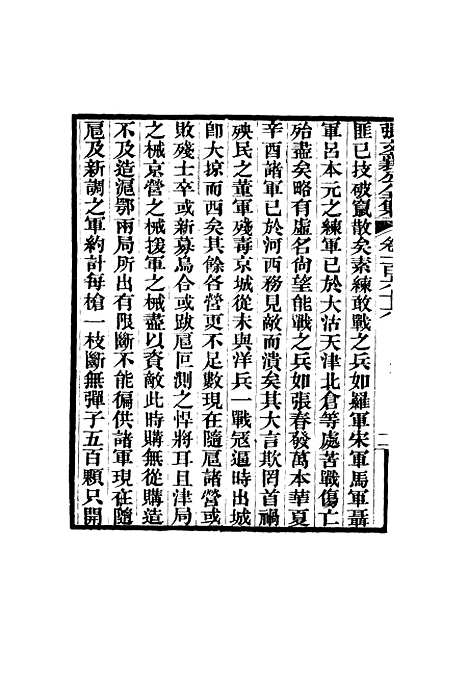 張文襄公全集 卷一百六十六 二
匪已技破竄散矣素練敢戰之兵如羅軍宋軍馬軍聶
軍呂本元之練軍已於大沽天津北倉等處苦戰傷亡
殆盡矣略有虛名尙望能戰之兵如張春發萬本華夏
辛酉諸軍已於河西務見敵而潰矣其大言欺罔首禍
殃民之董軍殘毒京城從未與洋兵一戰寇逼時出城
卽大掠而西矣其餘各營更不足數現在隨扈諸營或
敗殘士卒或新募烏合或跋扈叵測之悍將耳且津局
之械京營之械援軍之械盡以資敵此時購無從購造
不及造滬鄂兩局所出有限斷不能徧供諸軍現在隨
扈及新調之軍約計每槍一枝斷無彈子五百顆只開